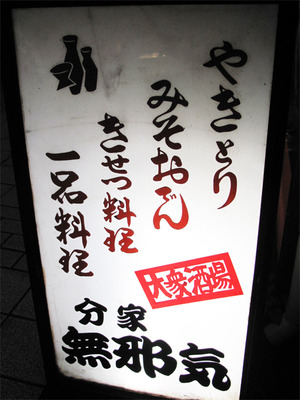 やきとり
みそおでん
きせつ料理
一品料理
大衆酒場
分家
無邪気